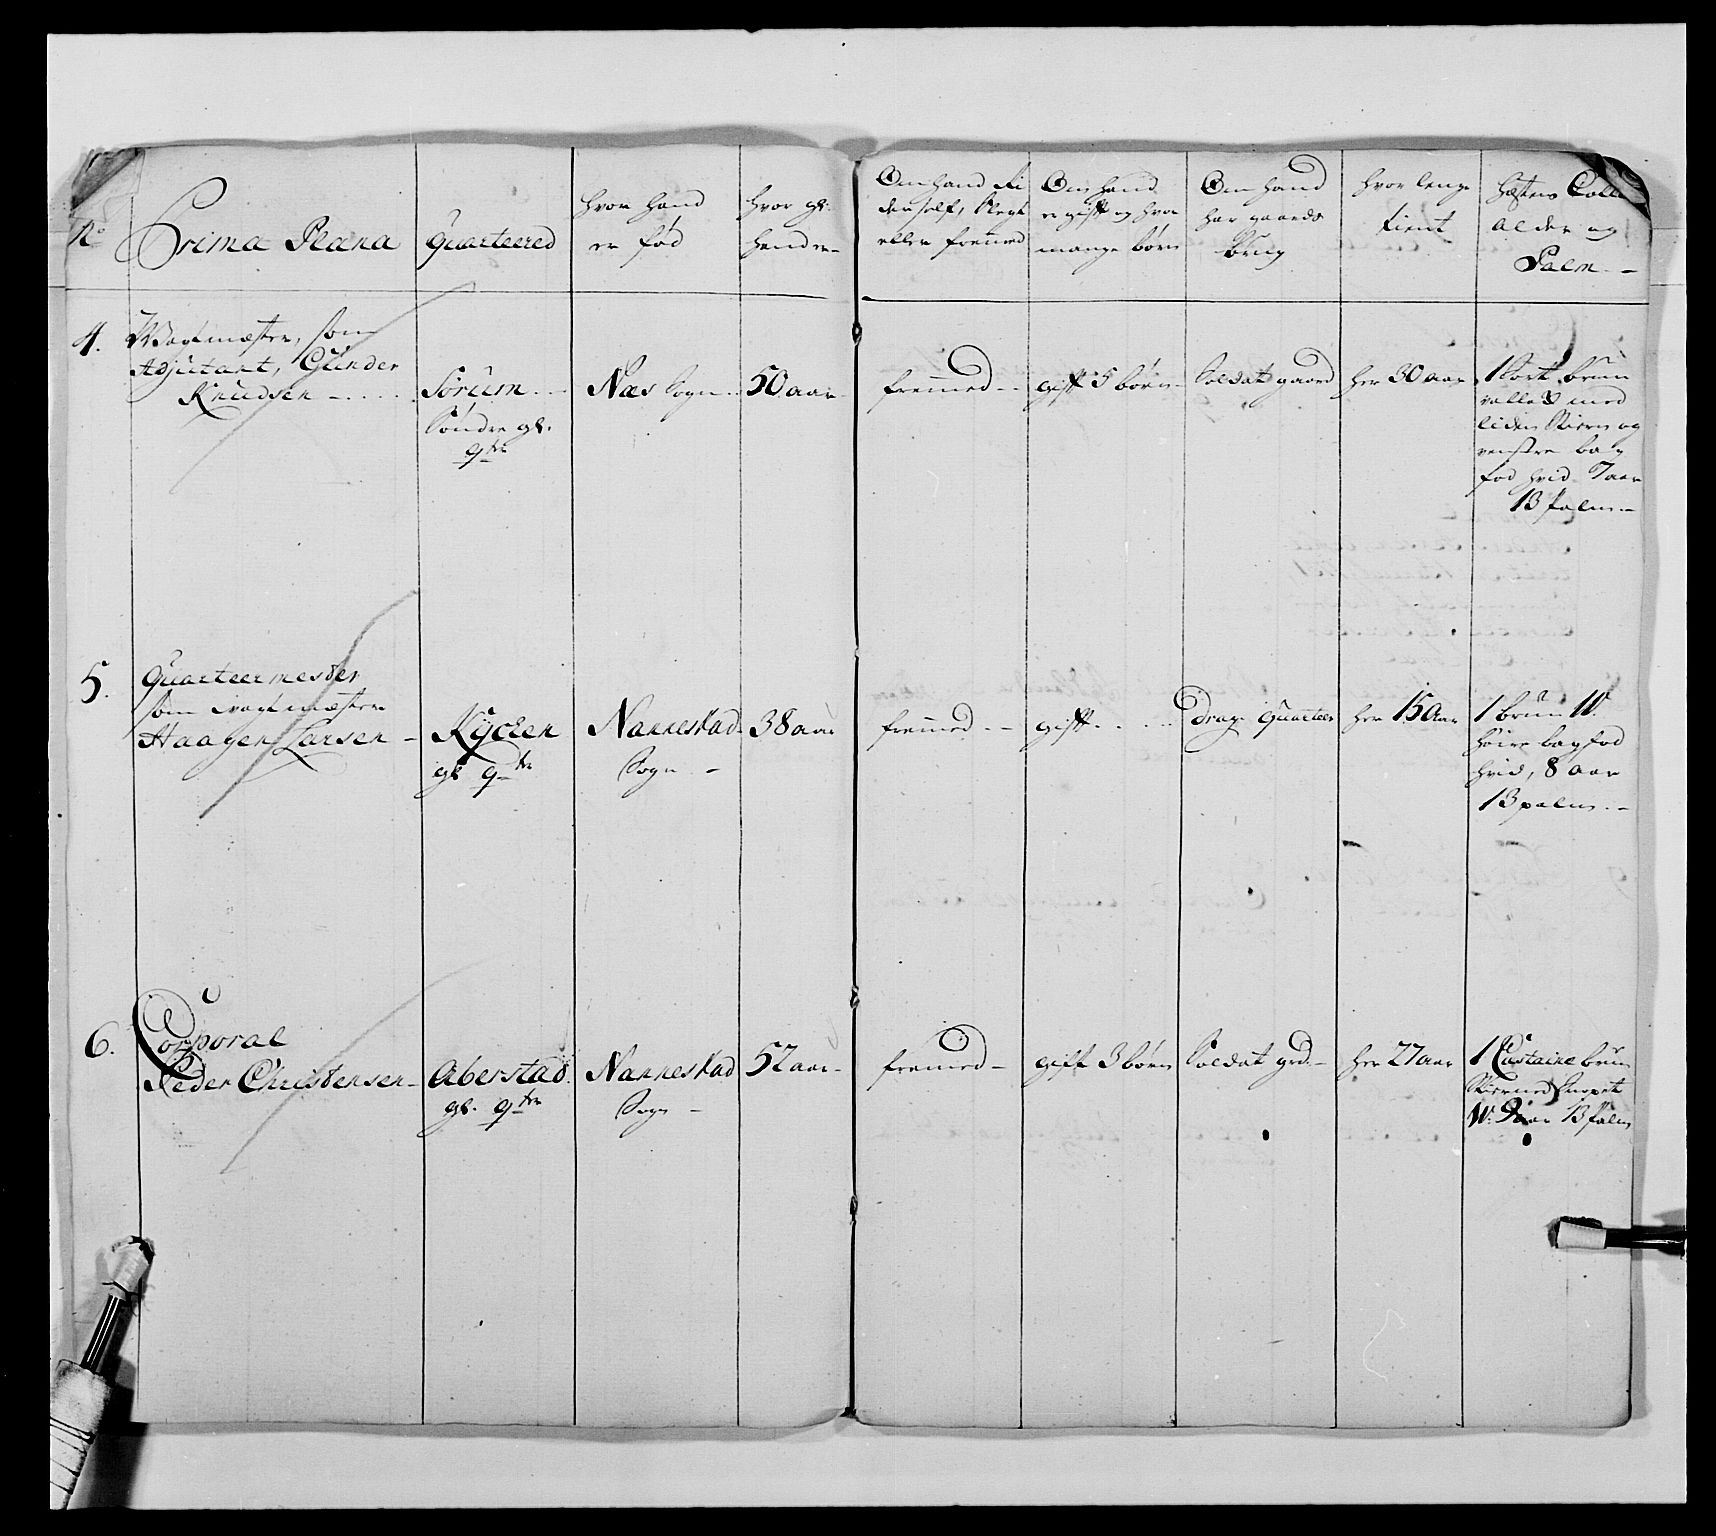 No
Prima Plana
Quarteered
hvor hand
er fød
hvor gl:
hand er
Om hand Ri
der self, Slegt
eller fremmed
Om hand
er gift og hvor
mange børn
Om hand
har gaards
brug
hvor lenge
tient
hæstens Coll
alder og
Palm
4.
Wagtmæster, som
Adjutant, Gunder
Knudsen
Sørum
Søndre gl.
qtr
Næs Sogn
50 aar
fremmed
gift 5 børn
Soldat gaard
her 30 aar
1 Sort brun
vallak med
liden Stiern og
venstre bag
fod hvid 7 aar
13 Palm
5.
Quarteermester
som wagtmæster
Haagen Larsen
Kycken
gl qtr
Nannestad
Sogn
38 aar
fremmed
gift
Drag: Quarteer
her 15 Aar
1 brun W.
høire bagfod
hvid, 8 aar
13 palm
6.
Corporal
Peder Christensen
Aberstad
gl. qtr
Nannestad
Sogn
52 aar
fremed
gift 3 børn
Soldat grd.
her 27 aar
1 Castaine brun
Stierned Snopet
W: 9 aar 13 Palm